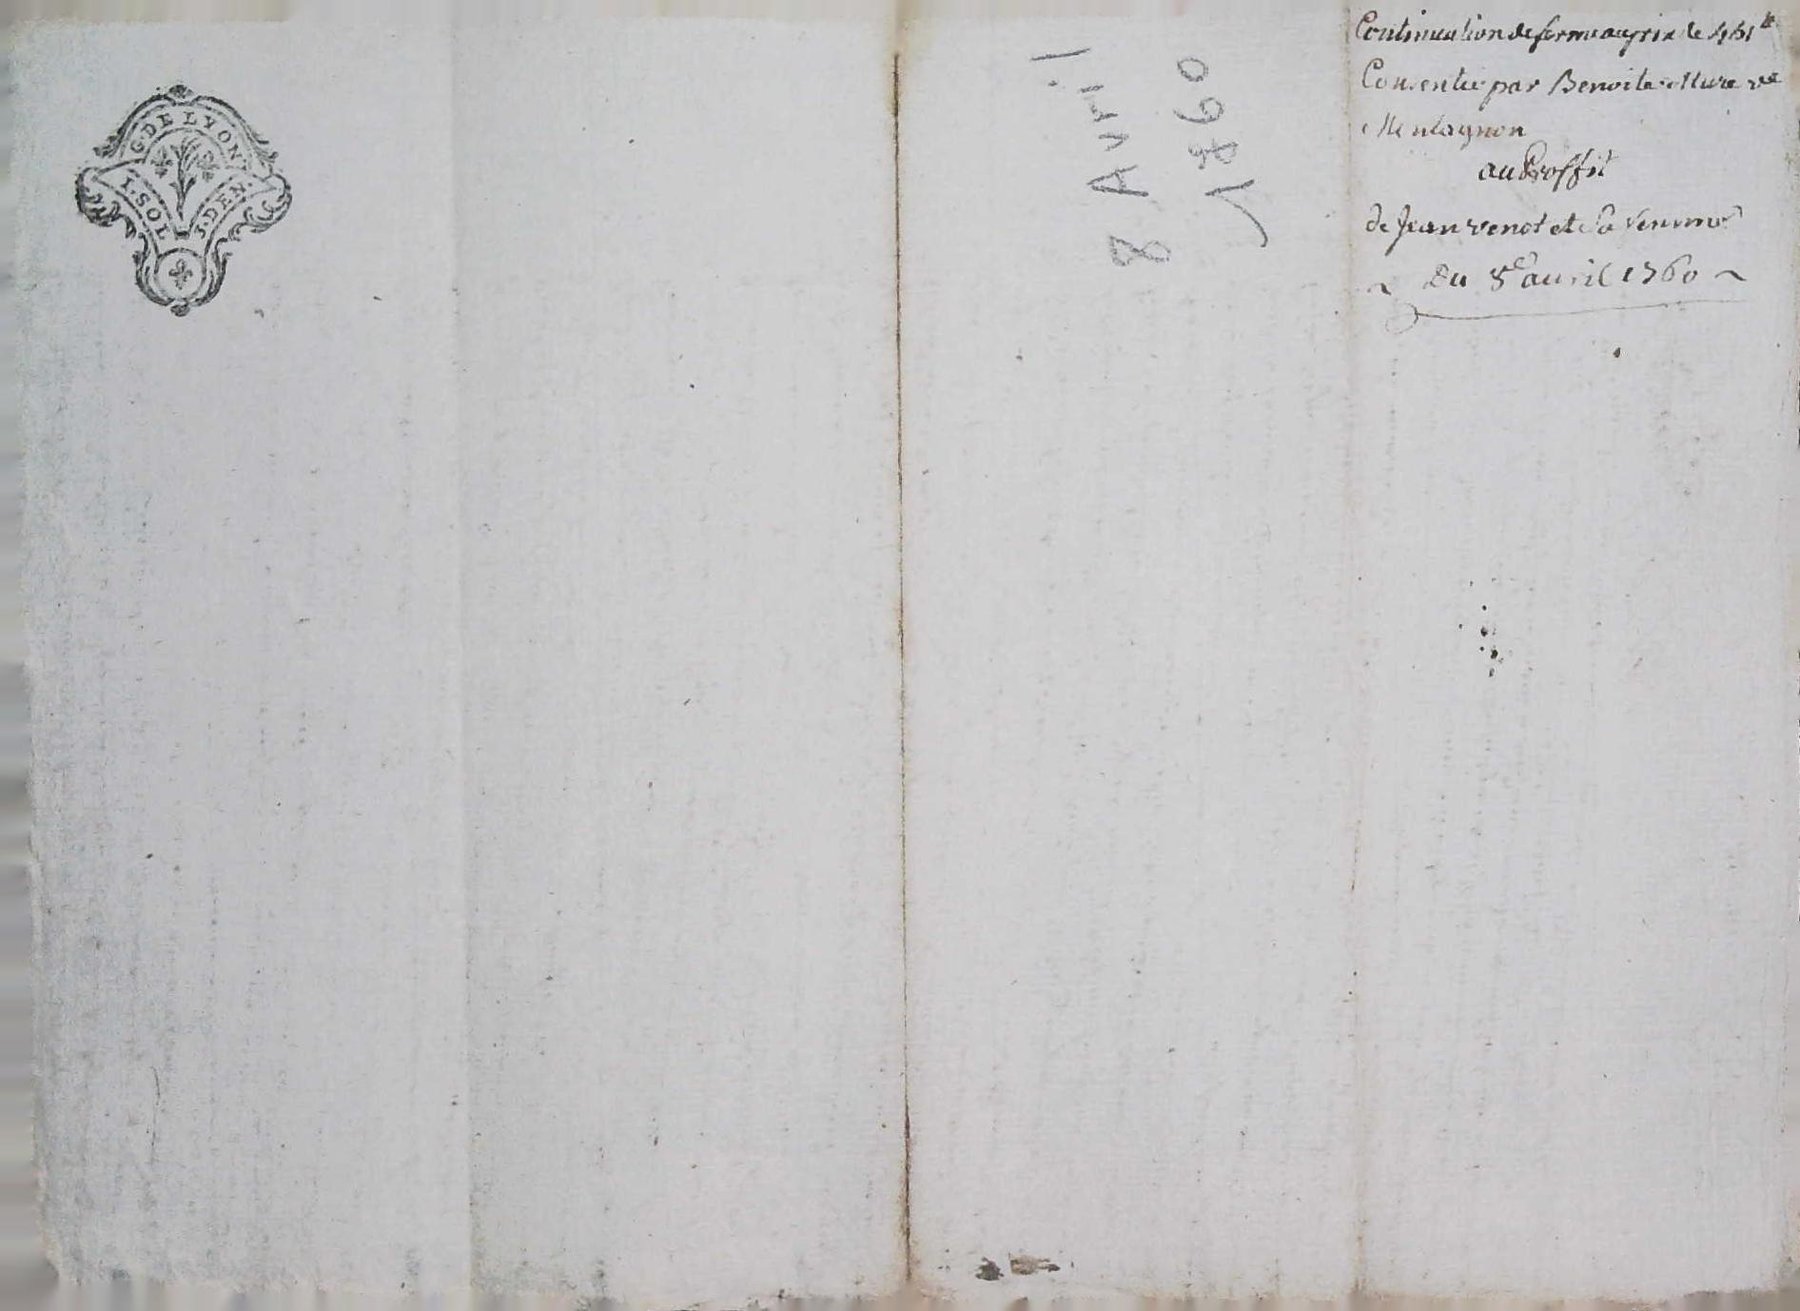 G. DE LYON.
1. SOL
3. DEN.
8 Avril
1760
Continuation de ferme au prix de 451 ₶
Consentie par Benoite Mure ve
Montagnon
au Proffit
de Jean venot et Sa femme
~ Du 8e avril 1760 ~